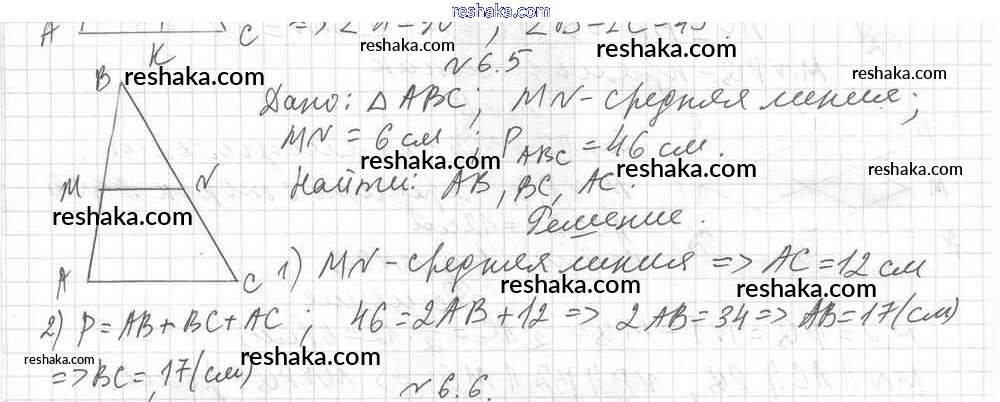 reshaka.com
A K C => ∠A = 90 ; ∠B = ∠C = 45
№6.5
B
Дано: △ABC; MN - средняя линия;
MN = 6 см ; P ABC = 46 см.
M N Найти: AB, BC, AC.
Решение.
A C 1) MN - средняя линия => AC = 12 см
2) P = AB + BC + AC ; 46 = 2AB + 12 => 2AB = 34 => AB = 17 (см)
=> BC = 17 (см)
№6.6.
reshaka.com
reshaka.com
reshaka.com
reshaka.com
reshaka.com
reshaka.com
reshaka.com
reshaka.com
reshaka.com
reshaka.com
reshaka.com
reshaka.com